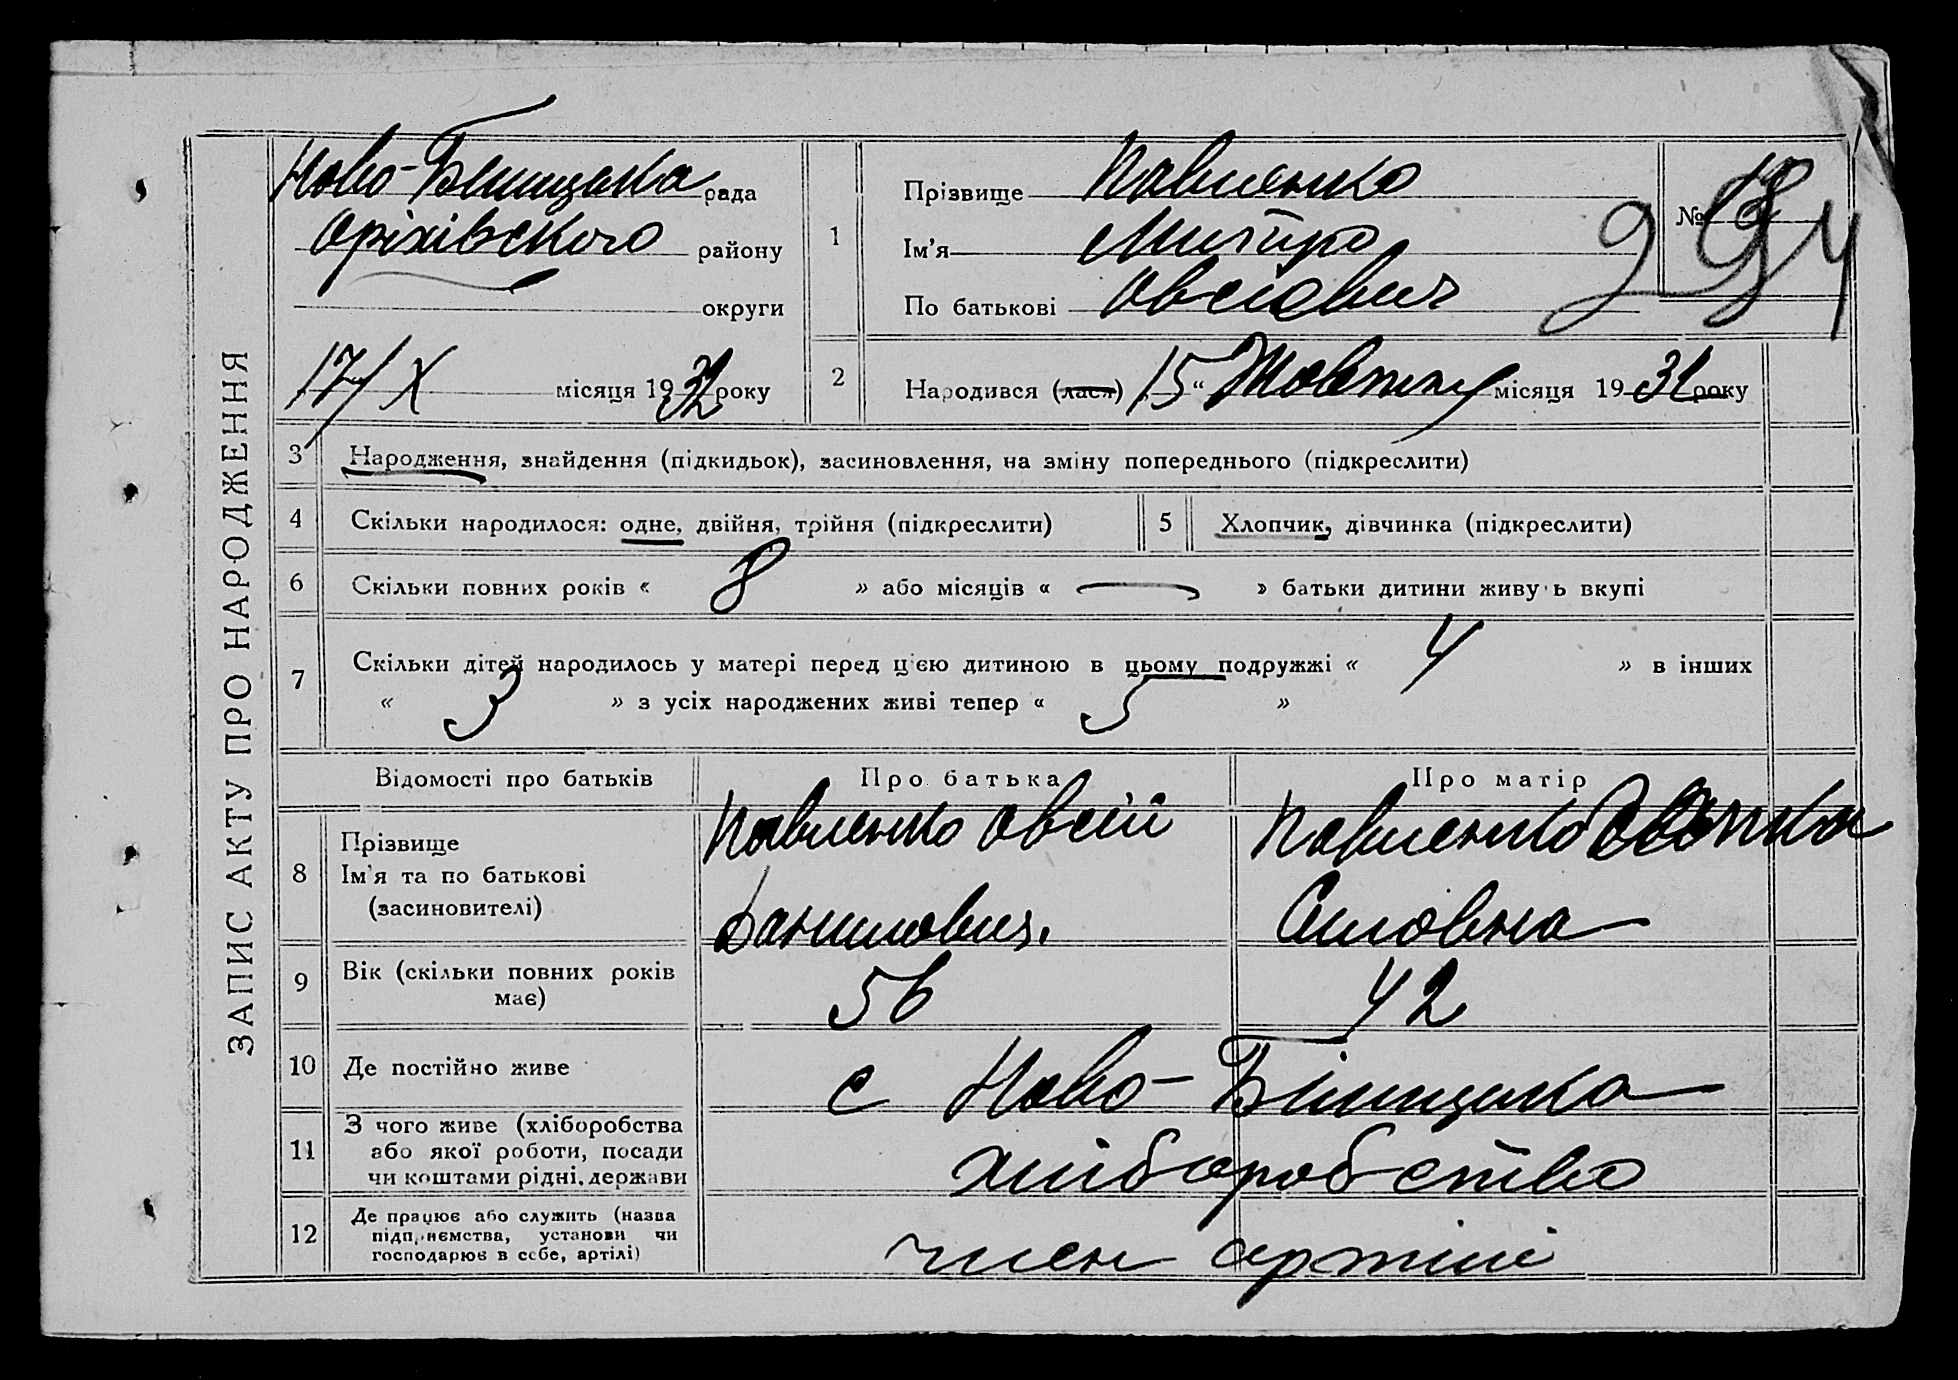 ЗАПИС АКТУ ПРО НАРОДЖЕННЯ
Ново-Білицька рада
Оріхівського району
округи
17/X місяця 1932 року
1
Прізвище Павленко
Ім'я Митро
По батькові Овсієвич
№
2
Народився (лася) 15 “ Жовтня місяця 1931 року
3 Народження, знайдення (підкидьок), засиновлення, на зміну попереднього (підкреслити)
4 Скільки народилося: одне, двійня, трійня (підкреслити) 5 Хлопчик, дівчинка (підкреслити)
6 Скільки повних років « 8 » або місяців « — » батьки дитини живу ь вкупі
7 Скільки дітей народилось у матері перед цією дитиною в цьому подружжі « 4 » в інших
« 3 » з усіх народжених живі тепер « 5 »
Відомості про батьків Про батька Про матір
8 Прізвище
Ім'я та по батькові
(засиновителі)
Павленко Овсій
Данилович.
Павленко
9 Вік (скільки повних років
має)
56 42
10 Де постійно живе с Ново-Білицька
11 З чого живе (хліборобства
або якої роботи, посади
чи коштами рідні, держави
хліборобство
12 Де працює або служить (назва
підприємства, установи чи
господарює в себе, артілі)
член артілі